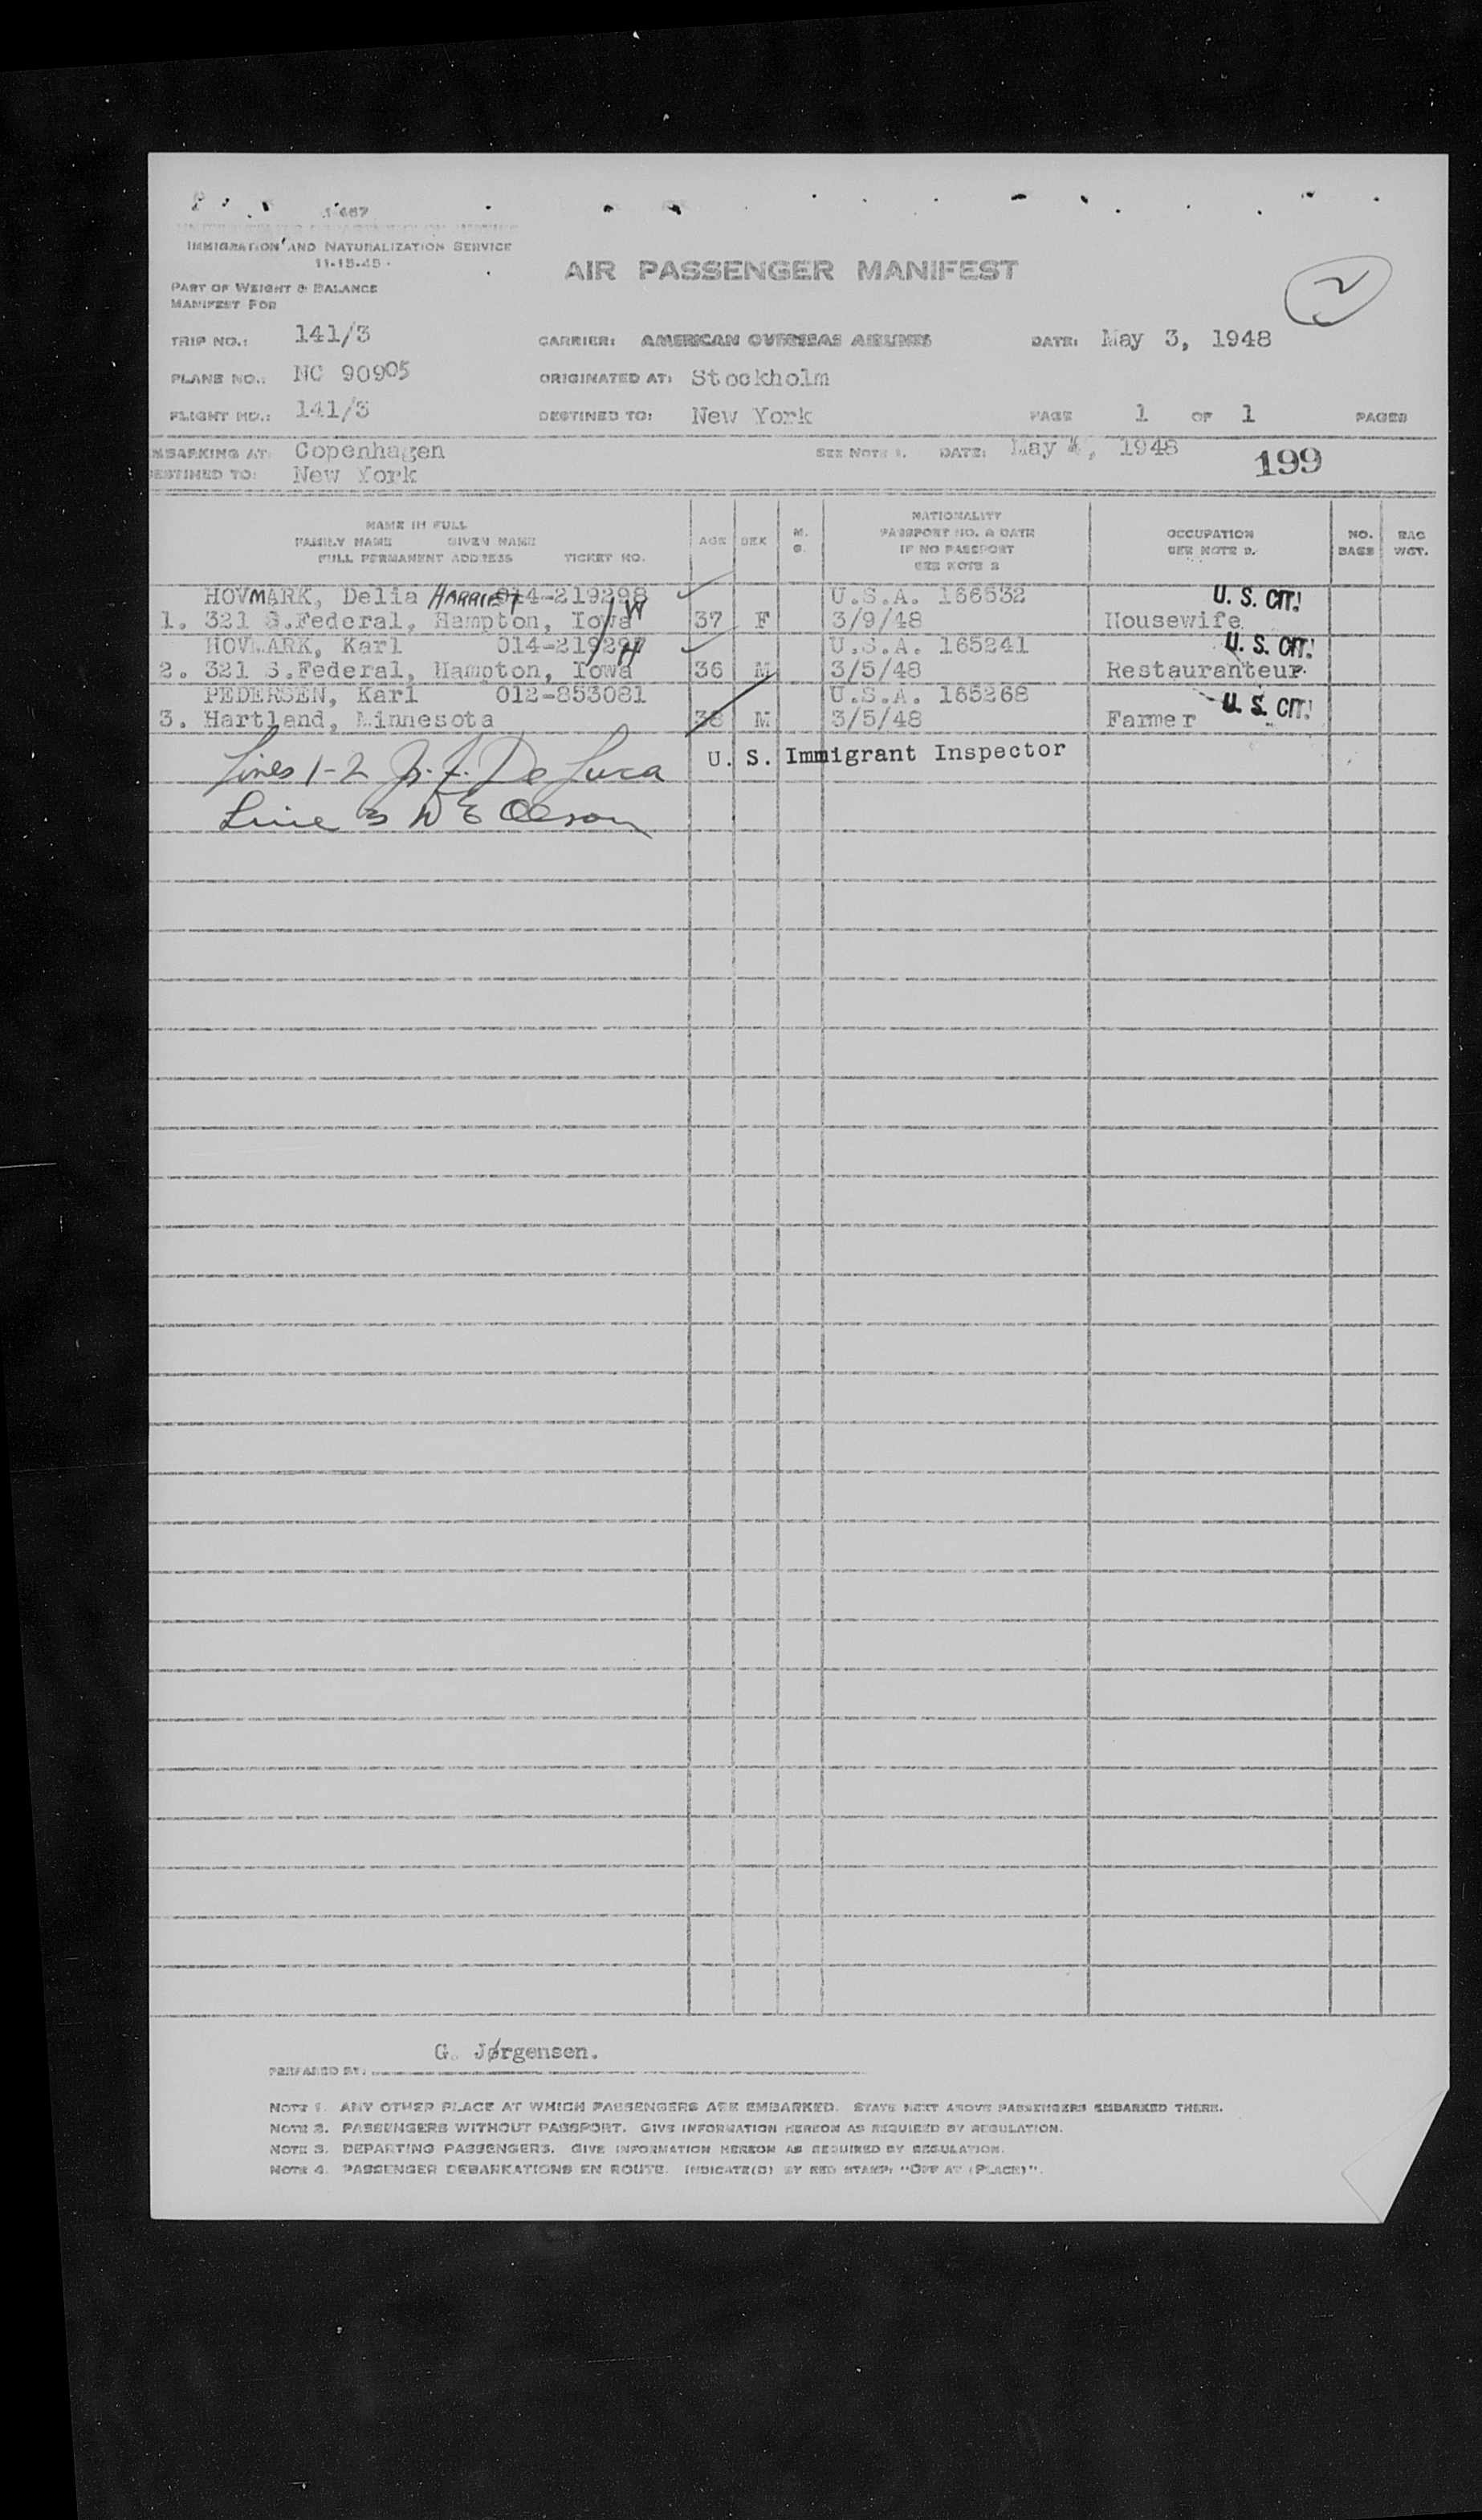 I-467
IMMIGRATION AND NATURALIZATION SERVICE
11-15-45
AIR PASSENGER MANIFEST
2
PART OF WEIGHT & BALANCE
MANIFEST FOR
TRIP NO.: 141/3 CARRIER: AMERICAN OVERSEAS AIRLINES DATE: May 3, 1948
PLANE NO.: NC 90905 ORIGINATED AT: Stockholm
FLIGHT NO.: 141/3 DESTINED TO: New York PAGE 1 OF 1 PAGES
MBARKING AT: Copenhagen SEE NOTE 1. DATE: May 4, 1948
ESTINED TO: New York 199
NAME IN FULL
FAMILY NAME GIVEN NAME
FULL PERMANENT ADDRESS TICKET NO.
AGE SEX M. G.
NATIONALITY
PASSPORT NO. & DATE
IF NO PASSPORT
SEE NOTE 2
OCCUPATION
SEE NOTE 2.
NO. BAGS
BAG WGT.
HOVMARK, Delia HARRIET 014-219298 U.S.A. 166532 U. S. CIT!
1. 321 S.Federal, Hampton, Iowa W 37 F 3/9/48 Housewife
HOVMARK, Karl 014-219297 U.S.A. 165241 U. S. CIT!
2. 321 S.Federal, Hampton, Iowa H 36 M 3/5/48 Restauranteur
PEDERSEN, Karl 012-853081 U.S.A. 165268
3. Hartland, Minnesota 38 M 3/5/48 Farmer U. S. CIT!
Lines 1-2 De Luca U. S. Immigrant Inspector
Line 3 W E Olson
G. Jørgensen.
PREPARED BY:
NOTE 1. ANY OTHER PLACE AT WHICH PASSENGERS ARE EMBARKED. STATE NEXT ABOVE PASSENGERS EMBARKED THERE.
NOTE 2. PASSENGERS WITHOUT PASSPORT. GIVE INFORMATION HEREON AS REQUIRED BY REGULATION.
NOTE 3. DEPARTING PASSENGERS. GIVE INFORMATION HEREON AS REQUIRED BY REGULATION.
NOTE 4. PASSENGER DEBARKATIONS EN ROUTE. INDICATE(D) BY RED STAMP: "OFF AT (PLACE)".